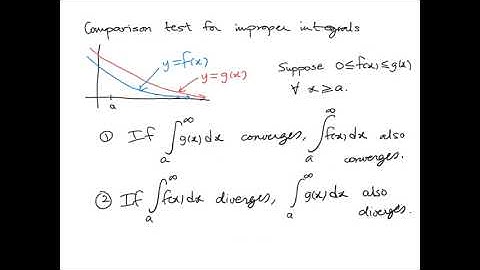 Comparison test for improper integrals
y=f(x)
y=g(x)
a
Suppose 0≤f(x)≤g(x)
∀ x≥a.
① If ∫ₐ^∞ g(x)dx converges, ∫ₐ^∞ f(x)dx also
converges.
② If ∫ₐ^∞ f(x)dx diverges, ∫ₐ^∞ g(x)dx also
diverges.